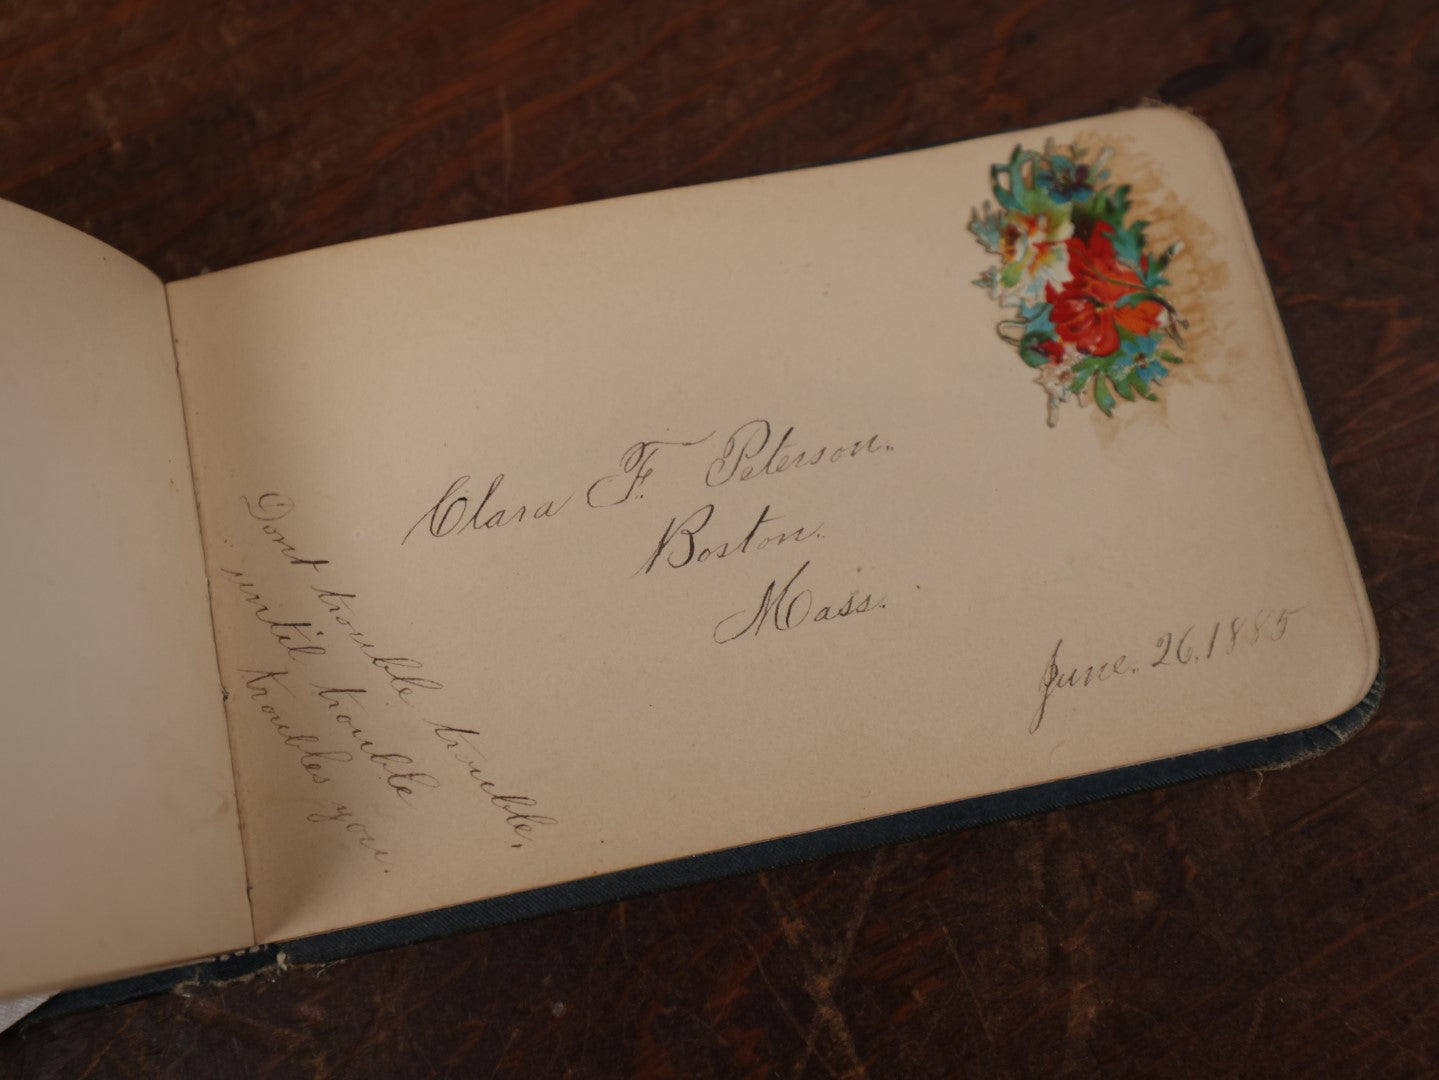 Clara F. Peterson.
Boston.
Mass.
June. 26. 1885
Dont trouble trouble,
until trouble
troubles you.